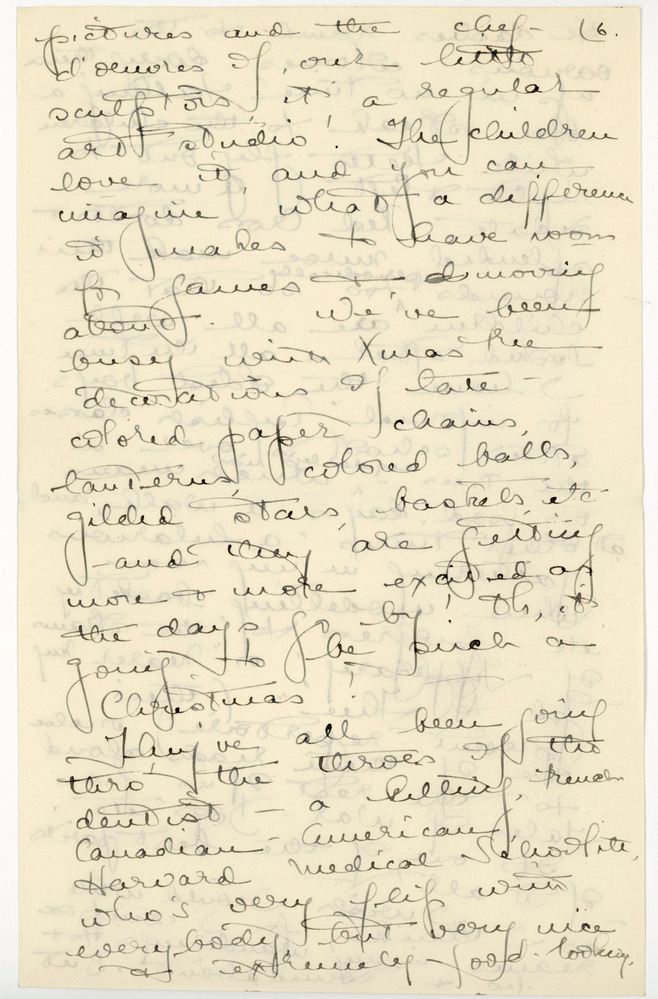 pictures and the chef- (6.
d'oeuvres of our little
sculptors, it's a regular
art studio! The children
love it, and you can
imagine what a difference
it makes to have room
for games & moving
about. We've been
busy with Xmas tree
decorations of late -
colored paper chains,
lanterns, colored balls,
gilded stars, baskets, etc
- and they are getting
more & more excited as
the days go by! Oh, it's
going to be such a
Christmas!
They've all been going
thro' the throes of the
dentist - a French
Canadian-American,
Harvard medical
who's very flip with
everybody but very nice
& extremely good-looking.